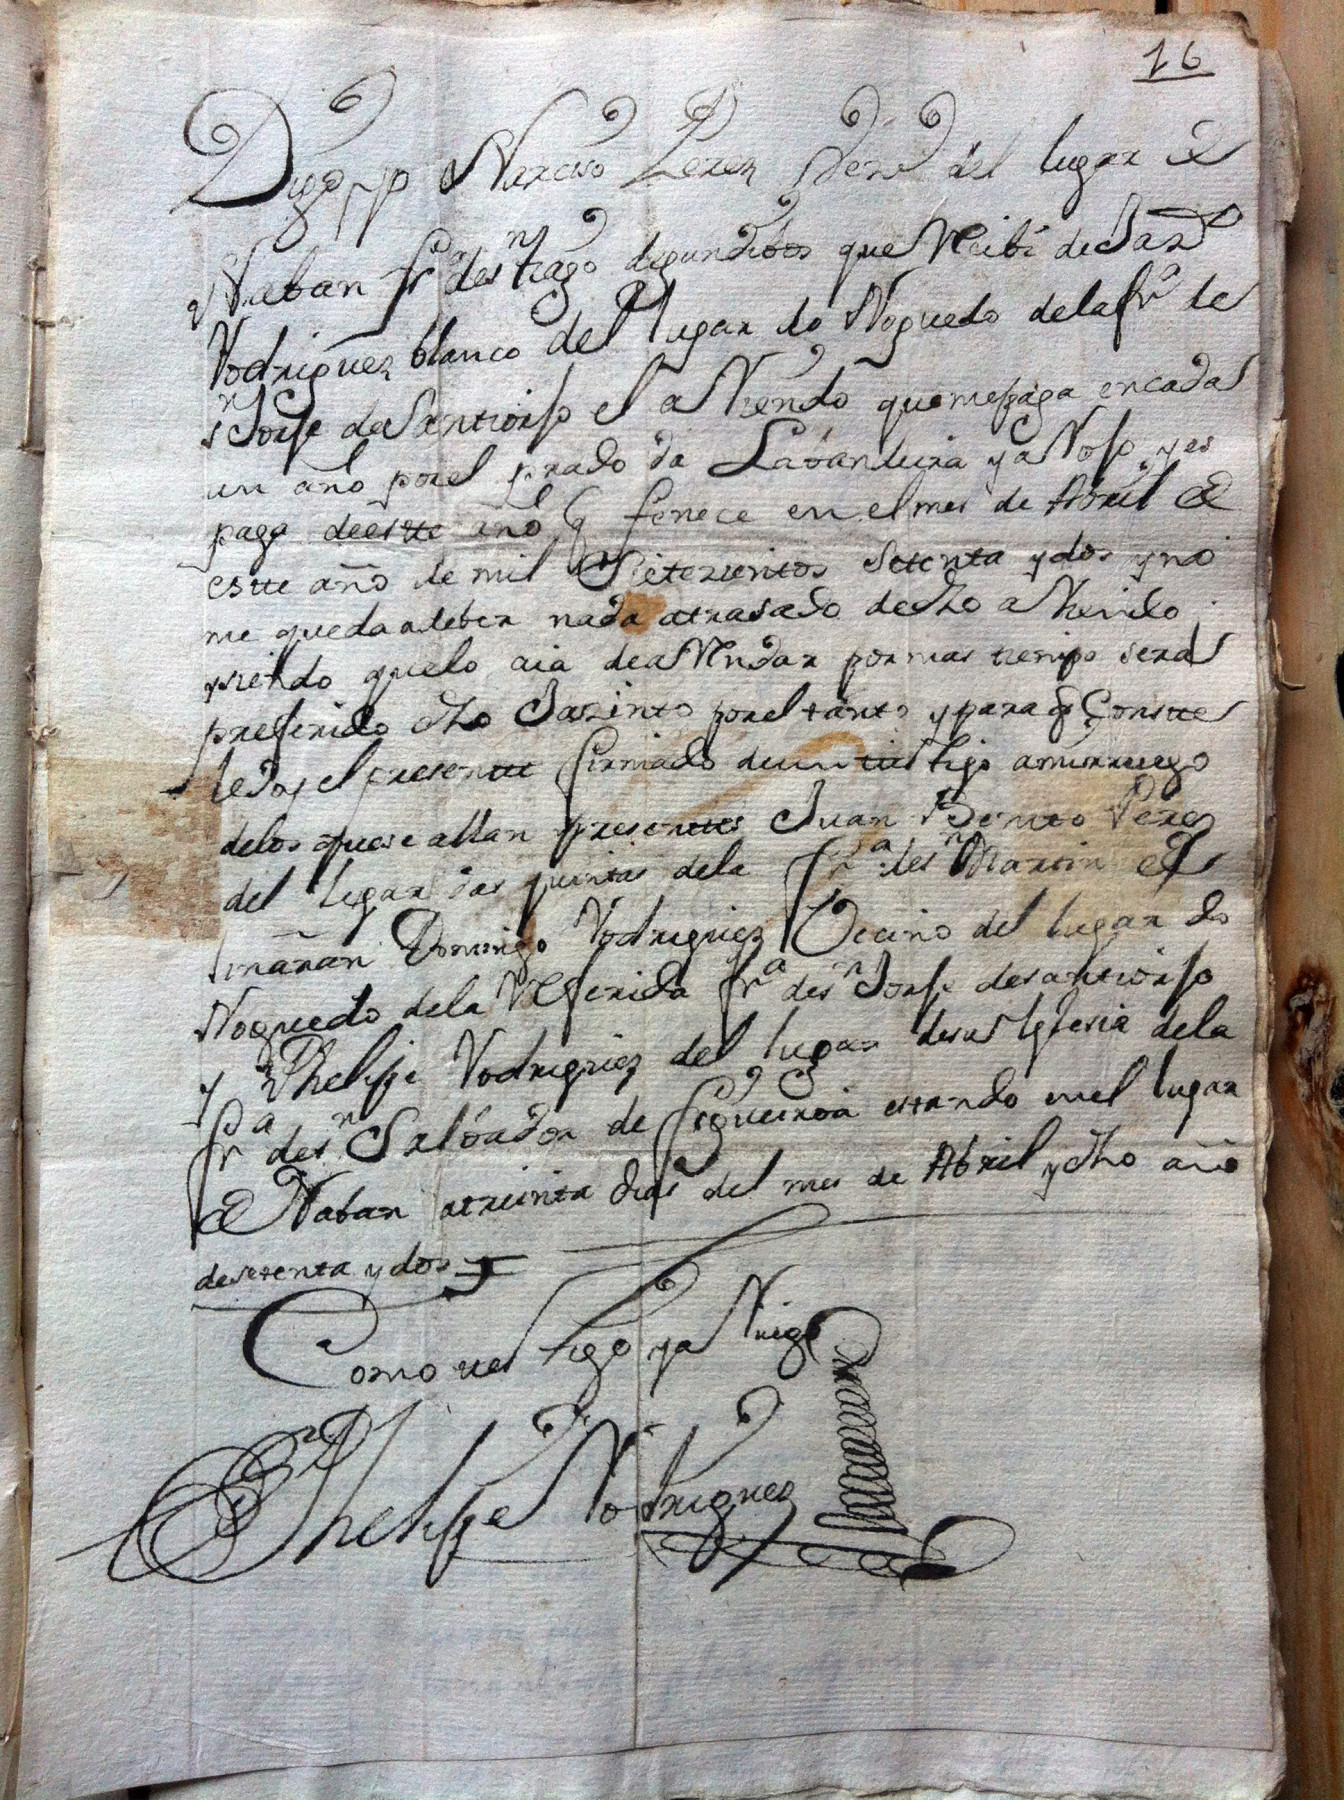 16
Digo yo Narciso Perez Vezº del lugar de
Naban frª de sⁿ tiago degundibos que Recibi de Jazᵗᵒ
Rodriguez blanco del lugar do Noguedo dela frª de
sⁿ Jorse de Santiorso el aRiendo que me paga en cada
un año por el prado da Labandeira ya Noso, y es
paga de estte año q fenece en el mes de Abril de
estte año de mil Sietezientos setenta y dos y no
me queda a deber nada atrasado de dho aRiendo
y siendo que lo aia de aRendar por mas tiempo sera
preferido dho Jazinto por el tanto y para q Constte
le doy el presentte firmado de un testtigo a mi rruego
de los que se allan presenttes Juan Benito Perez
del lugar das quintas dela frª de sⁿ Martin de
smañan Domingo Rodriguez Vecino del lugar do
Noguedo dela Referida frª de sⁿ Jorse de santiorso
y Phelipe Rodriguez del lugar desa Iglesia dela
frª de sⁿ Salbador de figueiroa estando en el lugar
de Naban a treinta dias del mes de Abril y dho año
de setenta y dos
Como testigo y a Ruego
Phelipe Rodriguez